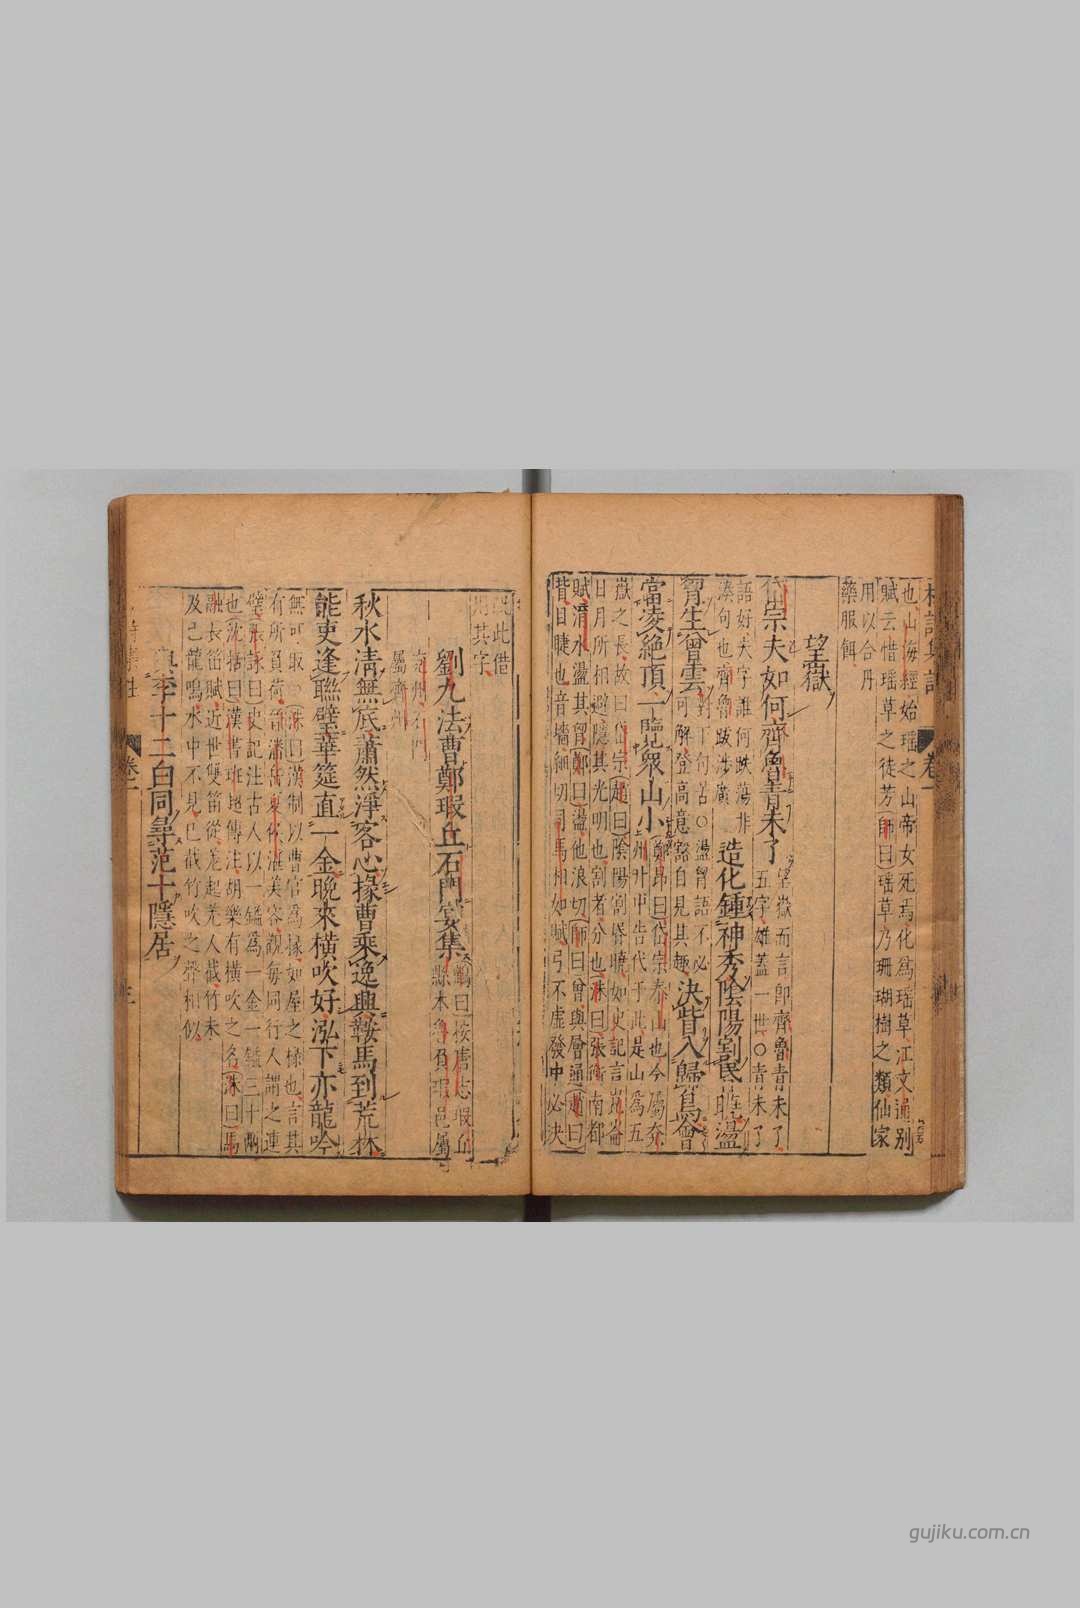 也山海經始瑶之山帝女死焉化爲瑶草江文通别
賦云惜瑶草之徒芳師曰瑶草乃珊瑚樹之類仙家
用以合丹
藥服餌
望嶽
岱宗夫如何齊魯青未了
望嶽而言即齊魯青未了
五字雄蓋一世〇青未了
語好夫字誰何跌蕩非
湊句也齊魯跋涉廣
造化鍾神秀陰陽割昏曉盪
胷生曾雲
對下句苦〇盪胷語不必
可解登高意豁自見其趣
決眥入歸鳥會
當凌絶頂一覽衆山小
鄭昂曰岱宗泰山也今屬兖
州升中告代于此是山爲五
嶽之長故曰岱宗趙曰陰陽割昏曉如史記言崑崙
日月所相避隱其光明也割者分也洙曰張衡南都
賦淯水盪其胷鄭曰盪他浪切師曰曾與層通趙曰
眥目睫也音墻細切司馬相如賦弓不虛發中必決
眥此借
用其字
劉九法曹鄭瑕丘石門宴集
鶴曰按唐志瑕丘
縣本魯負瑕邑屬
兖州石門
屬齊州
秋水清無底蕭然淨客心掾曹乘逸興鞍馬到荒林
能吏逢聯璧華筵直一金晚來横吹好泓下亦龍吟
無可取洙曰漢制以曹官爲掾如屋之椽也言其
有所負荷音潘岳夏侯湛美容觀每同行人謂之連
璧張詠曰史記注古人以一鎰爲一金一鎰二十兩
也沈括曰漢書班超傳注胡樂有横吹之名洙曰馬
融長笛賦近世雙笛從羌起羌人截竹未
及已龍鳴水中不見已截竹吹之聲相似
與李十二白同尋范十隱居
卷一
gujiku.com.cn